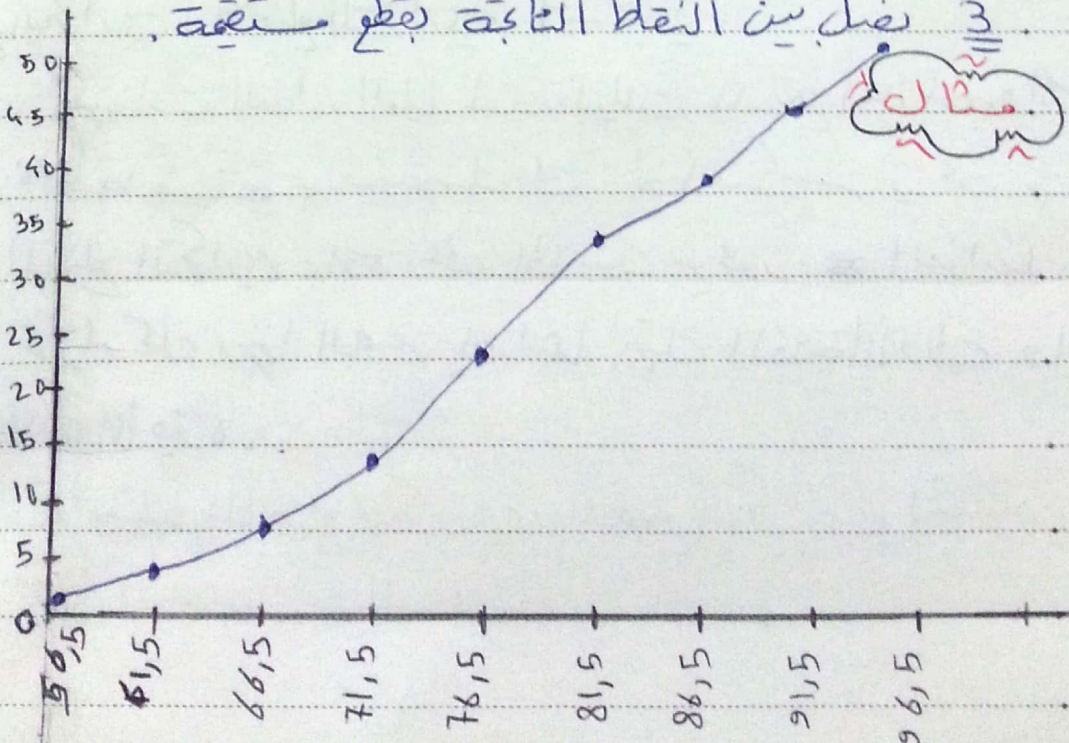 3 نصل بين النقاط الناتجة بقطع مستقيمة .
مثال
50
45
40
35
30
25
20
15
10
5
0
56,5 61,5 66,5 71,5 76,5 81,5 86,5 91,5 96,5